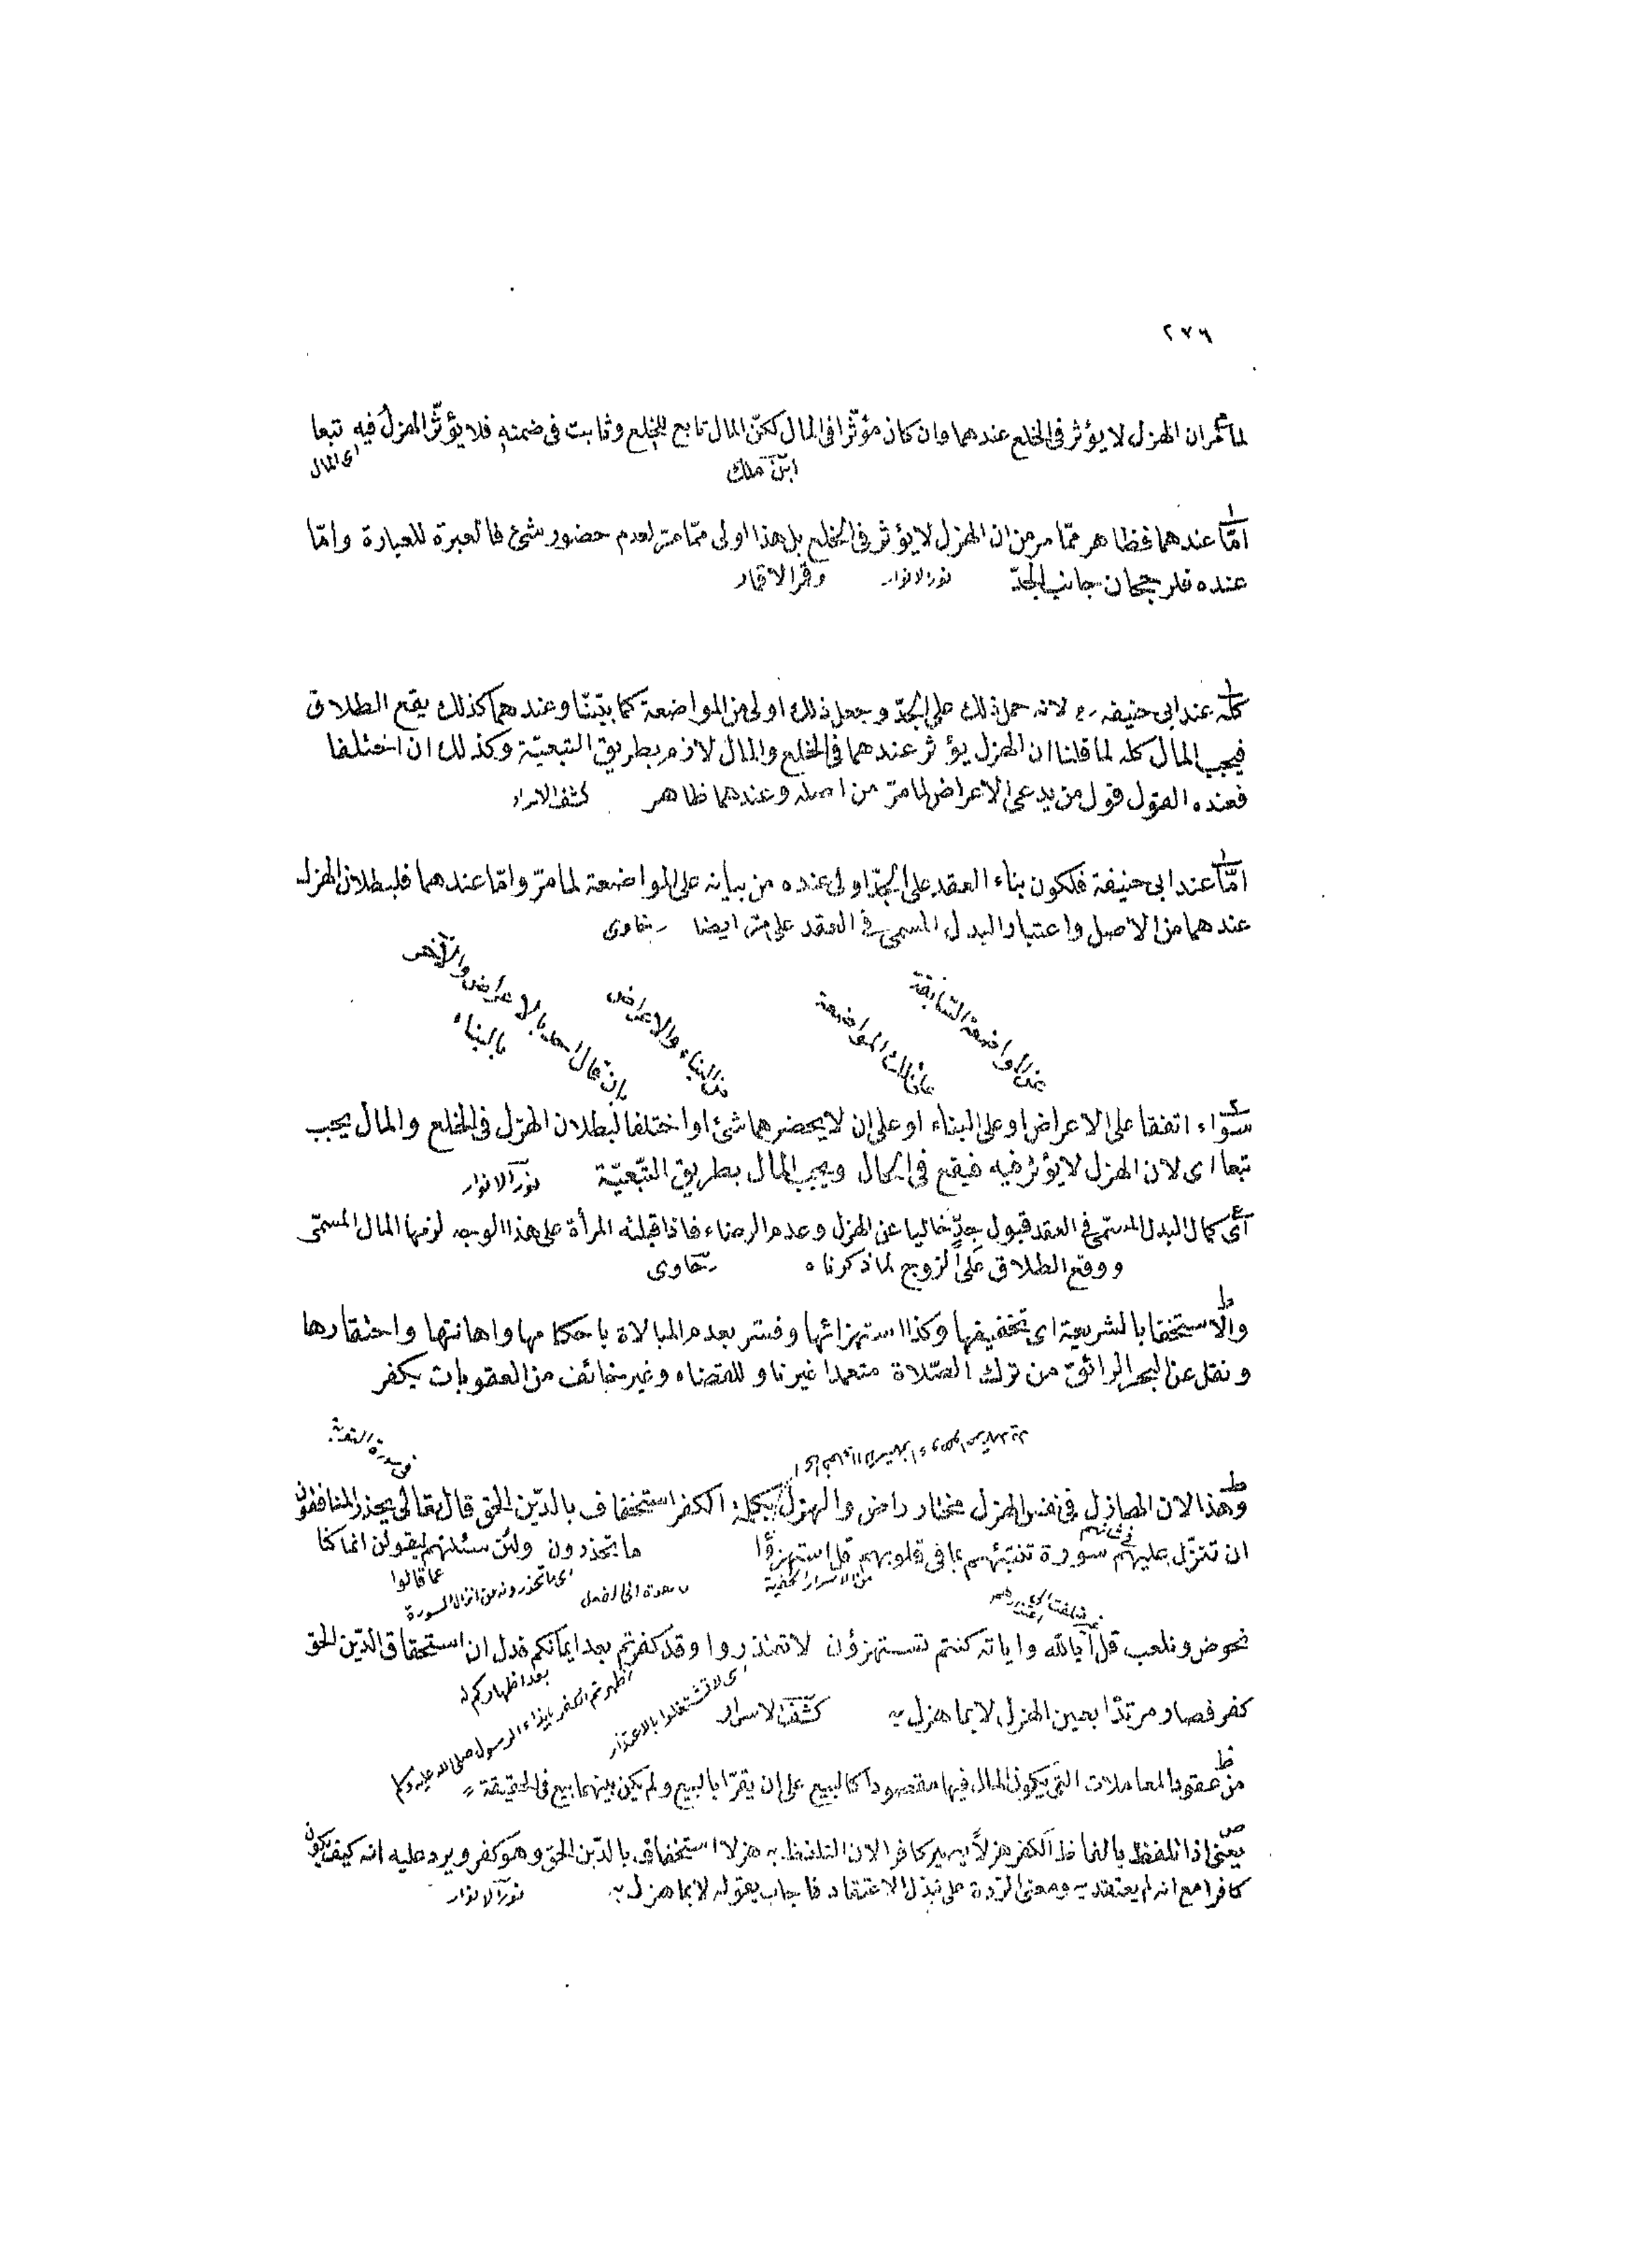 ٢٧٦
لما مر ان الهزل لا يؤثر فى الخلع عندهما وان كان مؤثرا فى المال لكن المال تابع للخلع وثابت فى ضمنه فلا يؤثر الهزل فيه تبعا
اى المال
ابن ملك
امّا عندهما فظاهر ممّا مر من ان الهزل لا يؤثر فى الخلع بل هذا اولى ممّا مر لعدم حضور شئ فالعبرة للعبارة وامّا
عنده فلرجحان جانب الجدّ نور الانوار وقمر الاقمار
كله عند ابى حنيفه ره لانه حمل ذلك على الجدّ وجعل ذلك اولى من المواضعة كما بيّنّا وعندهما كذلك يقع الطلاق
فيجب المال كله لما قلنا ان الهزل يؤثر عندهما فى الخلع والمال لازم بطريق التبعيّة وكذلك ان اختلفا
فعنده القول قول من يدعى الاعراض لما مرّ من اصله وعندهما ظاهر كشف الاسرار
امّا عند ابى حنيفة فلكون بناء العقد على الجدّ اولى عنده من بيانه على المواضعة لما مرّ وامّا عندهما فلبطلان الهزل
عندهما من الاصل واعتبار البدل المسمى فى العقد على مر ايضا رهاوى
عن المواضعة السّابقة
على تلك المواضعة
من البناء والاعراض
بان قال احد بالاعراض والآخر
بالبناء
سوّاء اتفقا على الاعراض او على البناء او على ان لا يحضرهما شئ او اختلفا لبطلان الهزل فى الخلع والمال يجب
تبعا اى لان الهزل لا يؤثر فيه فيقع فى الحال ويجب المال بطريق التّبعيّة نور الانوار
اى كمال البدل المسمّى فى العقد قبول جدّ خاليا عن الهزل وعدم الرضاء فاذا قبلته المرأة على هذا الوجه لزمها المال المسمّى
ووقع الطلاق على الزوج لما ذكرناه رهاوى
والاستخفا بالشريعة اى تخفيفها وكذا استهزائها وفسر بعدم المبالاة باحكامها واهانتها واحتقارها
ونقل عن البحر الرائق من ترك الصّلاة متعمدا غير ناو للقضاء وغير خائف من العقوبات يكفر
فى سورة التوبة
وهذا لان الهازل فى نفس الهزل مختار راض والهزل بكلمة الكفر استخفاف بالدّين الحق قال تعالى يحذر المنافقون
ان تنزّل عليهم سورة تنبّئهم بما فى قلوبهم قل استهزؤا ما تحذرون ولئن سئلتهم ليقولن انما كنا
فى شانهم
من الاسرار الخفية
اى ما تحذرونه من انزال السورة
عما قالوا
نخوض ونلعب قل أبالله واياته كنتم تستهزؤن لا تعتذروا وقد كفرتم بعد ايمانكم فدل ان استخفاف الدّين الحق
اى لا تشتغلوا بالاعتذار
اظهرتم الكفر بايذاء الرسول صلى الله عليه وسلم
بعد اظهاركم له
كفر فصار مرتدّا بعين الهزل لا بما هزل به كشف الاسرار
من عقود المعاملات التى يكون المال فيها مقصودا كالبيع على ان يقرّا بالبيع ولم يكن بينهما بيع فى الحقيقة
يعنى اذا تلفظ بالفاظ الكفر هزلاً يصير كافرا لان التلفظ به هزلا استخفاف بالدّين الحق وهو كفر ويرد عليه انه كيف يكون
كافرا مع انه لم يعتقد به ومعنى الرّدة على تبدل الاعتقاد فاجاب بقوله لا بما هزل به نور الانوار